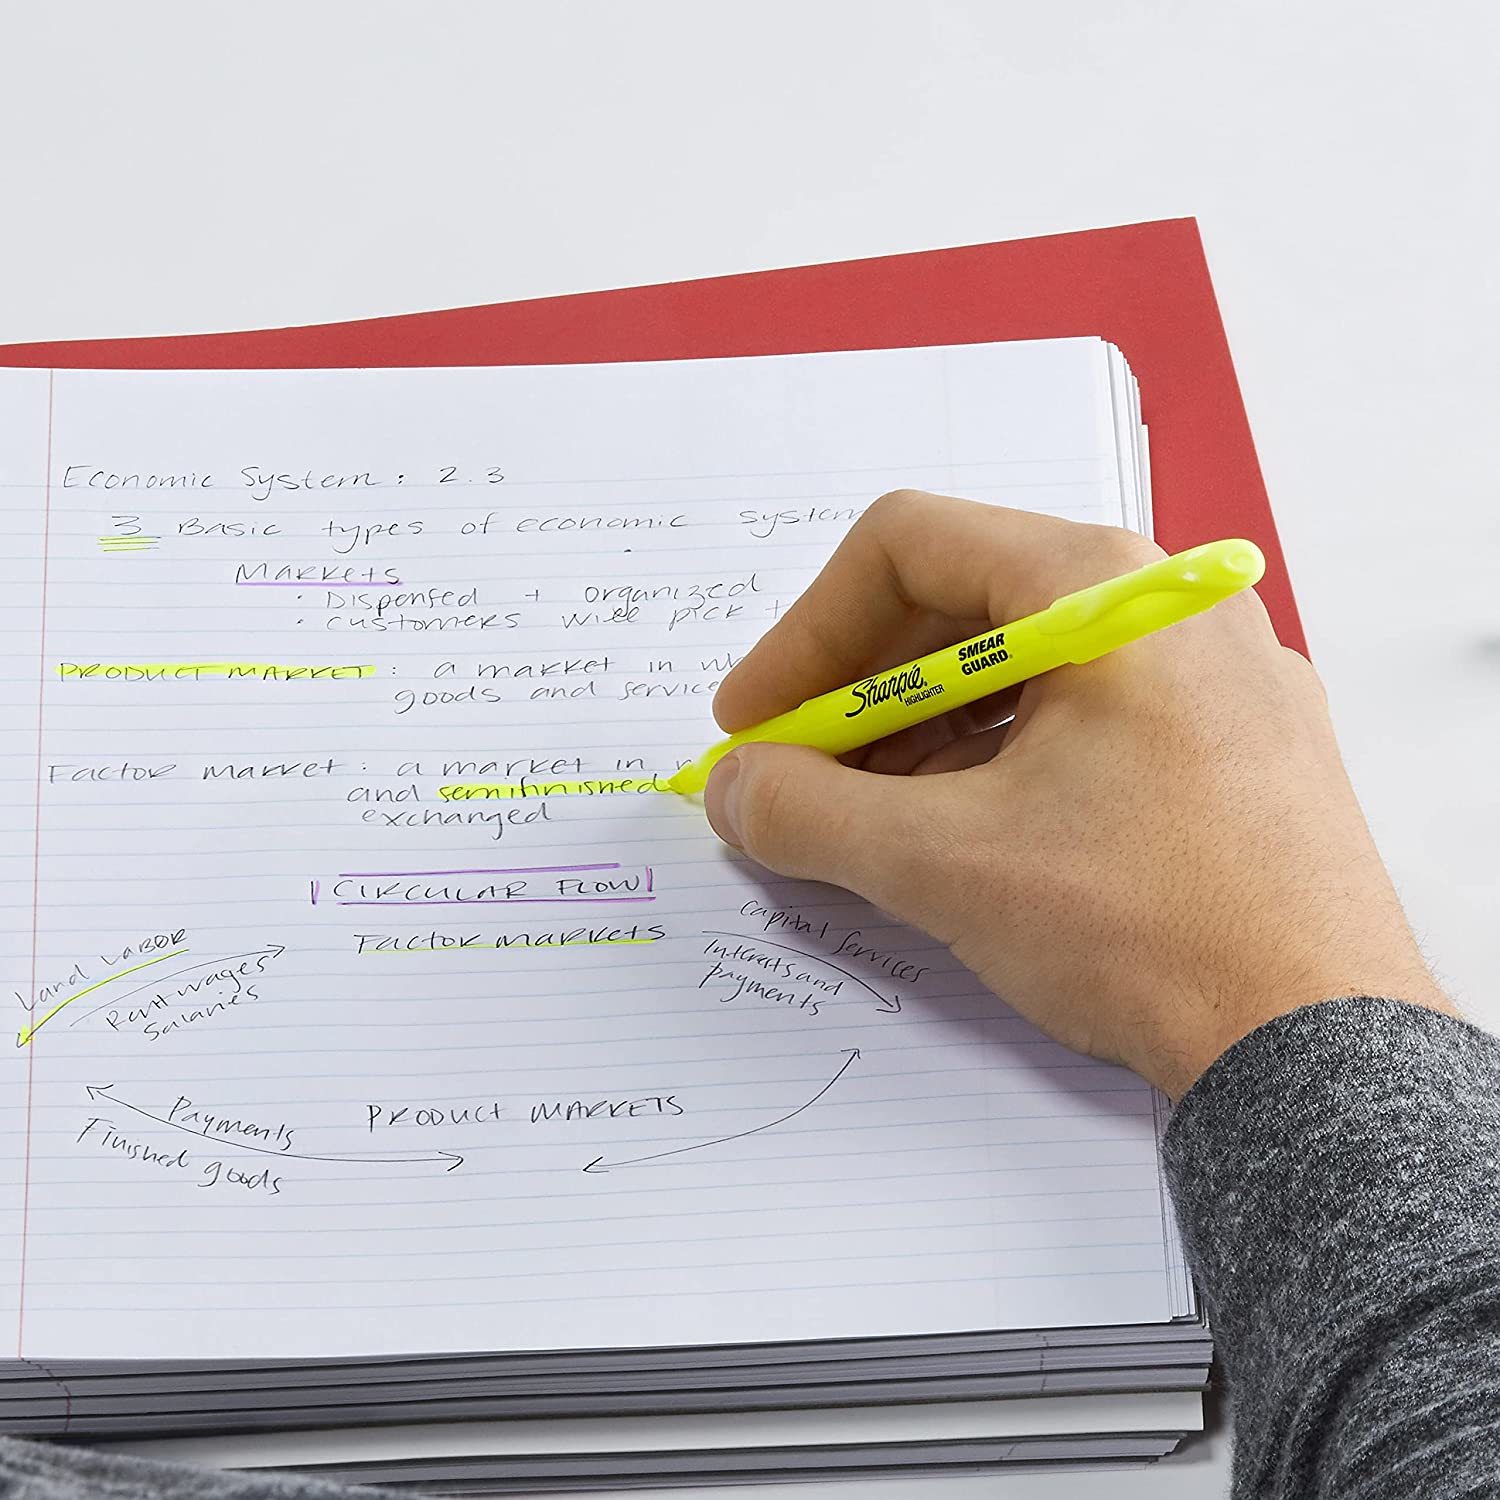 Economic System: 2.3
3 Basic types of economic system
Markets
• Dispensed + organized
• customers will pick
PRODUCT MARKET: a market in
goods and service
Factor market: a market in
and semifinished
exchanged
CIRCULAR FLOW
Factor markets
Land Labor
Rent wages
Salaries
capital services
Interests and
payments
Payments
Finished goods
PRODUCT MARKETS
Sharpie®
HIGHLIGHTER
SMEAR
GUARD®